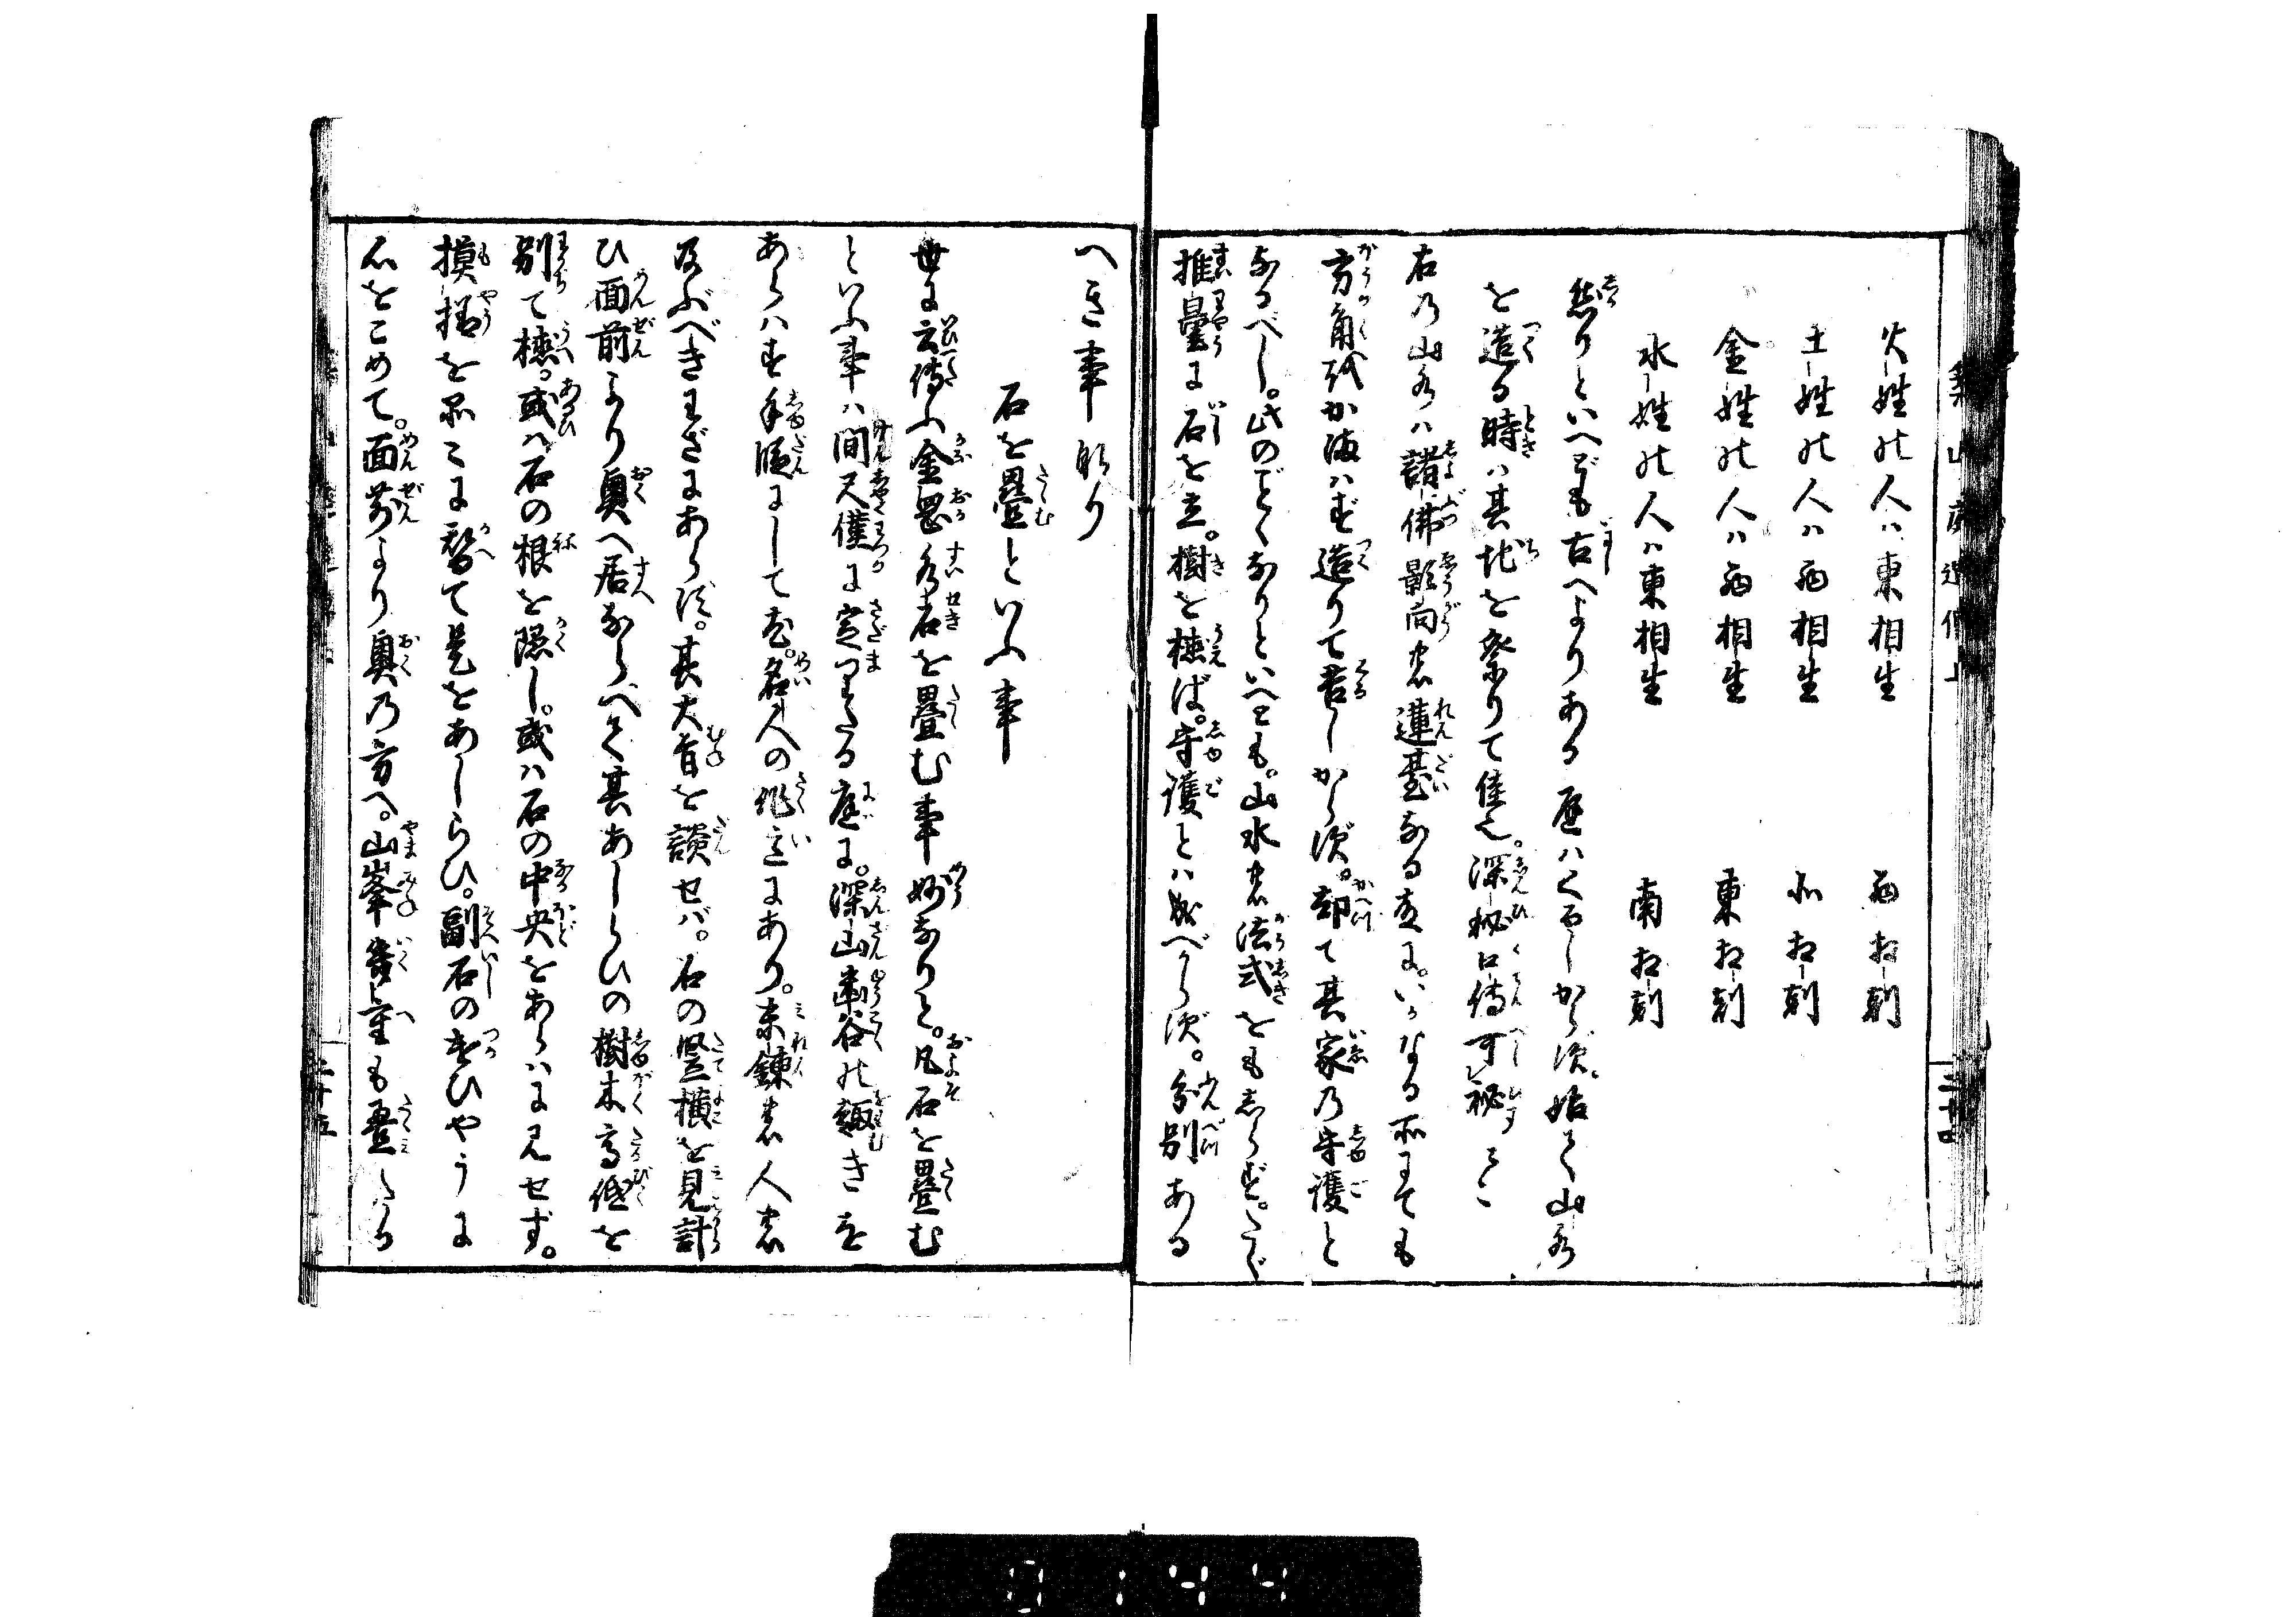 火姓の人ハ東相生　西相剋
土姓の人ハ西相生　北相剋
金姓の人ハ西相生　東相剋
水姓の人ハ東相生　南相剋
然りといへども古へよりある庭ハくるしからず。始て山水
を造る時ハ其地を祭りて佳也。深秘口傳可レ秘々々
右乃山水ハ諸佛影向の蓮臺なる故に。いかなる所にても
方角をかまハず造りて苦しからず。却て其家乃守護と
なるべし。此のごとくなりといへとも。山水の法式をもしらず。たゞ
推量に石を立。樹を植ば。守護とハ成べからず。分別ある
へき事也
石を疊といふ事
世に云傳ふ金岡水石を疊む事妙なりと。凡石を疊む
といふ事ハ間尺僅に定りたる庭に。深山幽谷の趣きを
あらハす手段にして。名人の作意にあり。未錬の人の
及ぶべきわざにあらず。其大旨を談せバ。石の竪横を見計
ひ面前より奥へ居ならべて其あしらひの樹木高低を
別て植。或ハ石の根を隠し。或ハ石の中央をあらハに見せず。
摸様を品々に替て是をあしらひ。副石のつかひやうに
心をこめて。面前より奥乃方へ。山峯幾重も疊たる
二十四